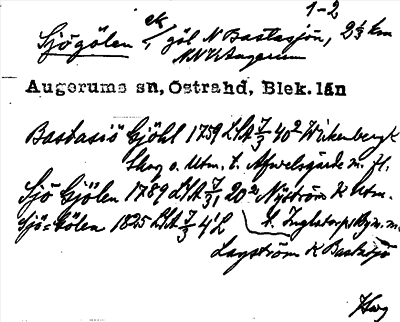 1-2
ek
Sjögölen, göl N Bastasjön, 2½ km
NNV Augerum
Augerums sn, Östrahd, Blek. län
Bastasiö Gjöhl 1759 LSA 7/3 40² Wirkenberg K
Skog o. Utm. t. Afwelsgärde m. fl.
Sjö Gjölen 1789 LSA 7/3, 20² Nyström K Utm.
Sjö=Gölen 1825 LSA 7/3 4'L t. Inglatorp
Lagström K Bastasjö